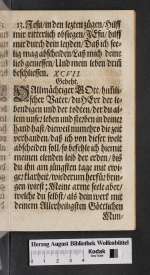 13. Jesu / in den letzten zügen / Hilff
mir ritterlich obsiegen / JEsu / hilff
mir durch dein leyden / Daß ich see-
lig mag abscheiden / Laß mich deine
lieb geniessen / Und mein leben drin
beschliessen. XCVII.
Gebeht.
O Allmächtiger GOtt, himli-
scher Vater / du HErr der le-
bendigen und der todten / bey du al-
lein unser leben und sterben in deiner
hand hast / dieweil nunmehro die zeit
vorhanden / daß ich von dieser welt
abscheiden soll / so befehle ich hiermit
meinen elenden leib der erden / biß
du ihn am jüngsten tage mit ewi-
ger klarheit / wiederum herfür brin-
gen wirst; Meine arme seele aber /
welche du selbst / als dein werck mit
deinem Allerheiligsten Göttlichen
Mun-
Herzog August Bibliothek Wolfenbüttel